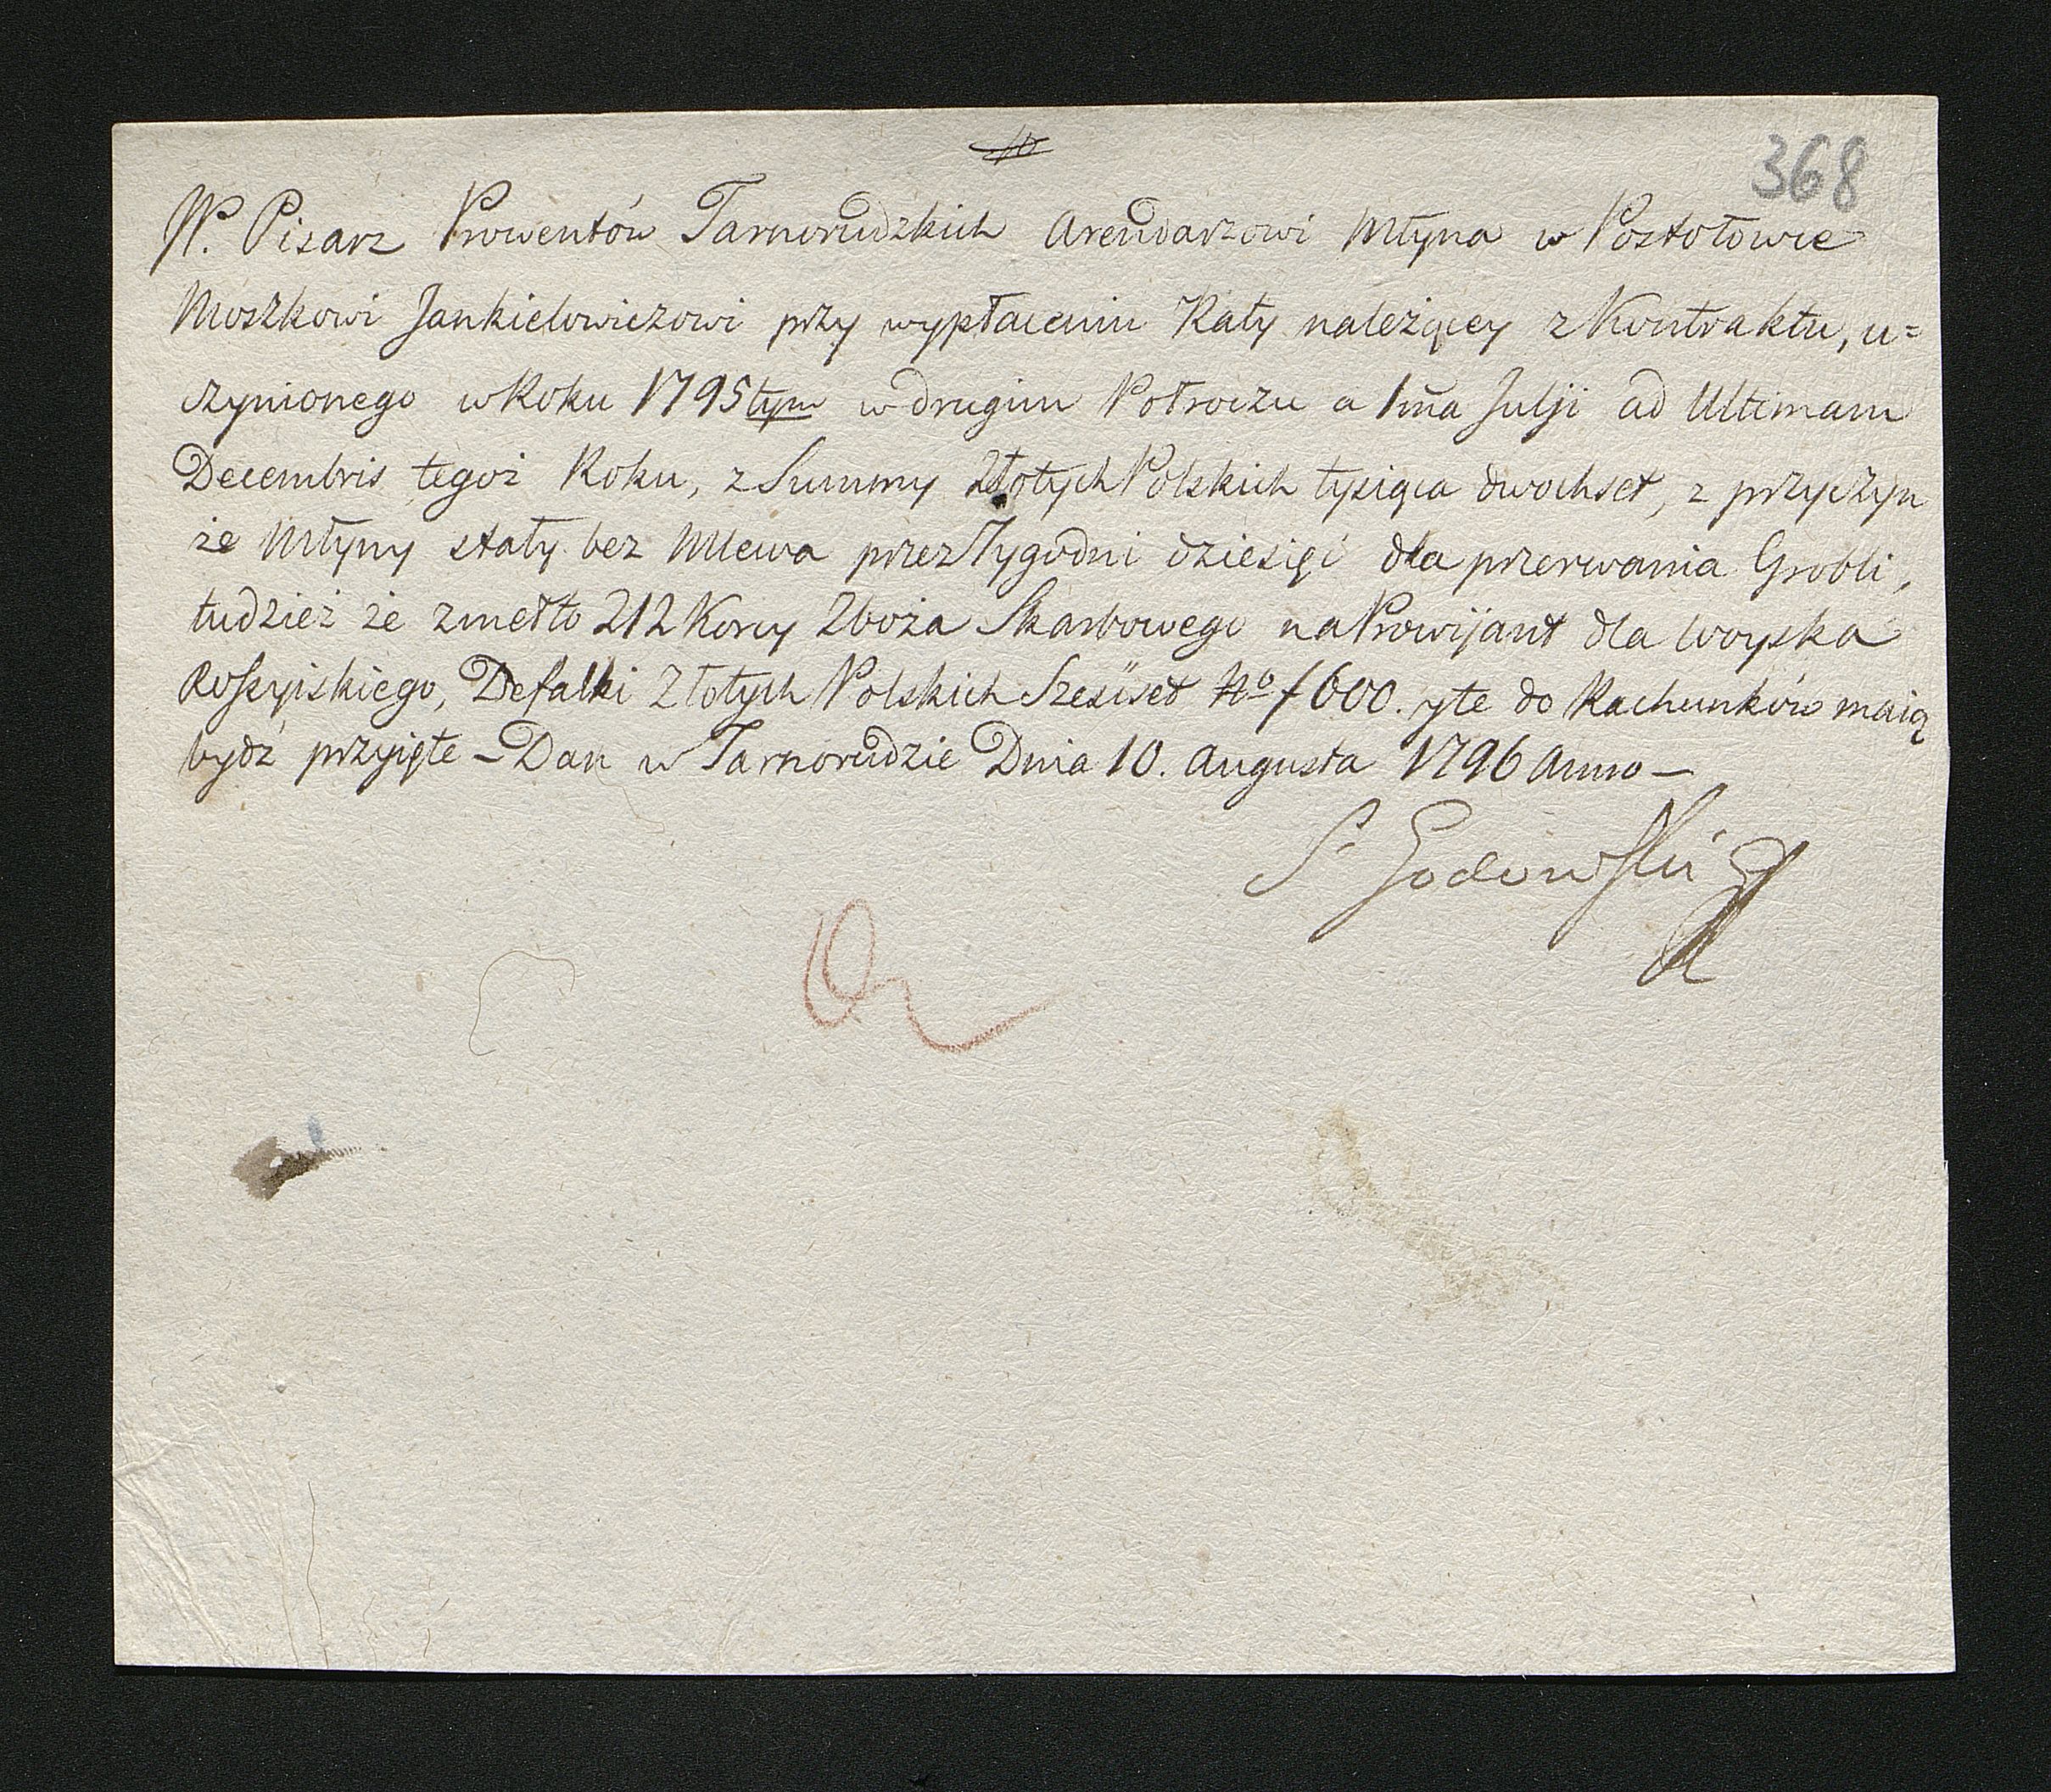 368
W. Pisarz Prowentów Tarnorudzkich Arendarzowi Młyna w Postołowie
Moszkowi Jankielowiczowi przy wypłaceniu Raty należącey z Kontraktu, u=
czynionego w Roku 1795tym w drugim Połroczu a 1ma Julji ad Ultimam
Decembris tegoż Roku, z Summy Złotych Polskich tysiąca dwochset, z przyczyn
że Młyny stały bez Mlewa przez Tygodni dziesięć dla przerwania Grobli,
tudzież że zmełto 212 Korcy Zboża Skarbowego na Prowijant dla Woyska
Rossyiskiego, Defalki Złotych Polskich Sześćset No f 600. yte do Rachunków maią
bydź przyięte – Dan w Tarnorudzie Dnia 10. Augusta 1796 Anno –
S. Godowski